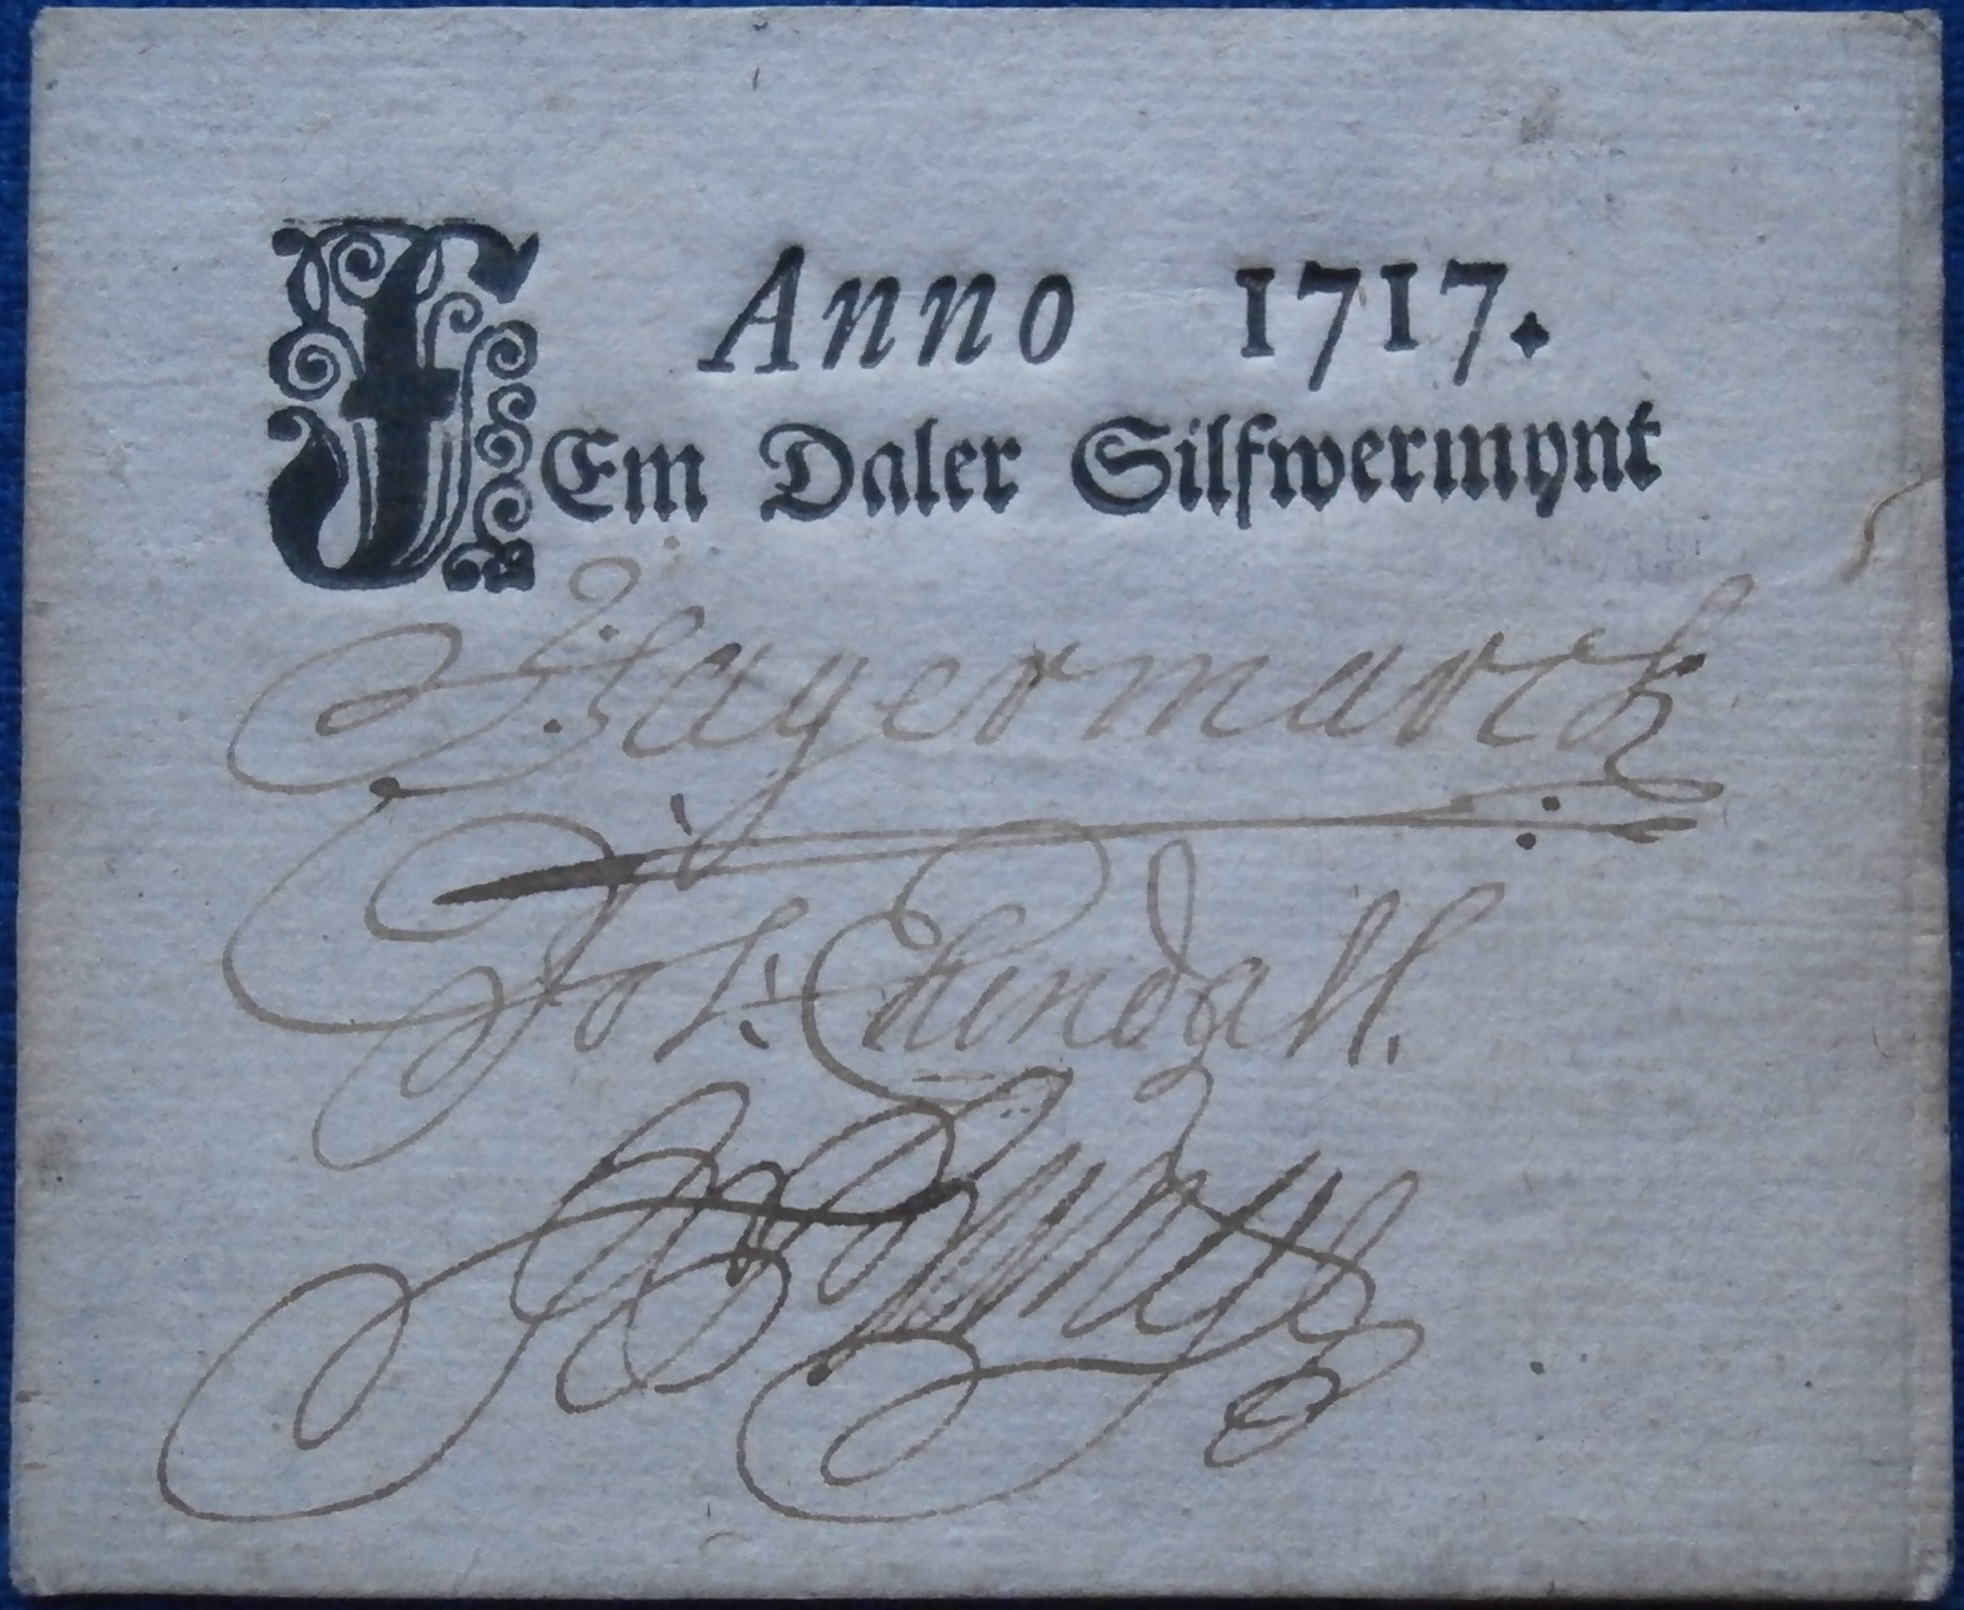 Anno 1717.
FEm Daler Silfwermynt
Jagermarck
Joh: Ehrendall.